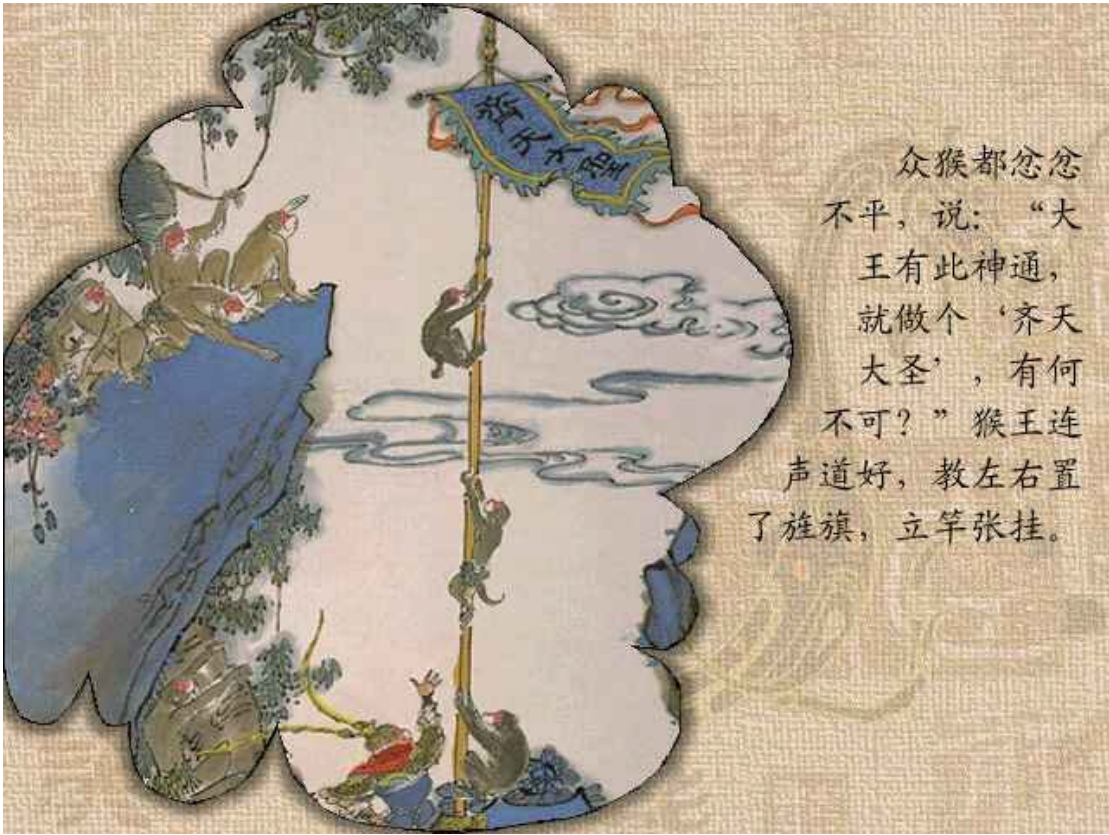 齊天大聖
众猴都忿忿
不平，说：“大
王有此神通，
就做个‘齐天
大圣’，有何
不可？”猴王连
声道好，教左右置
了旌旗，立竿张挂。